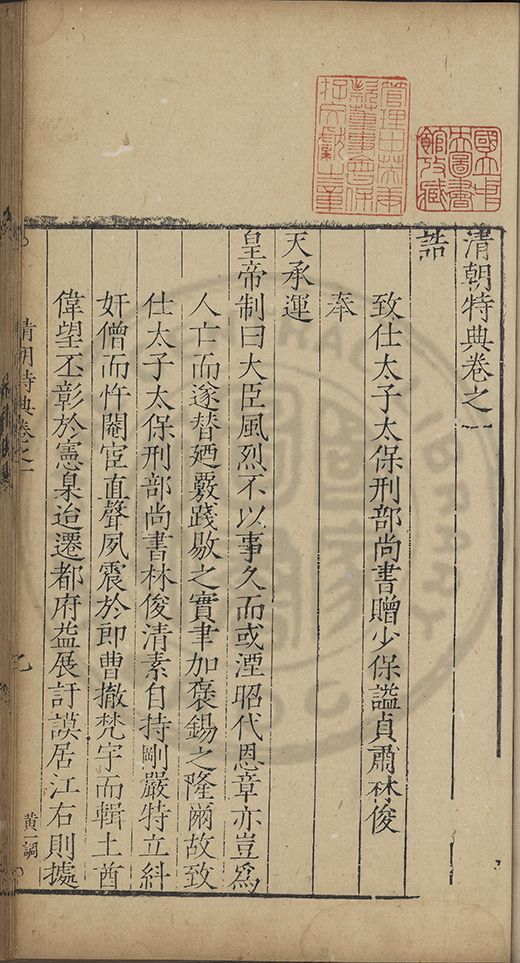 清朝特典卷之一
誥
致仕太子太保刑部尚書贈少保謚貞肅林俊
奉
天承運
皇帝制曰大臣風烈不以事久而或湮昭代恩章亦豈爲
人亡而遂替廼覈踐敭之實聿加褒錫之隆爾故致
仕太子太保刑部尚書林俊清素自持剛嚴特立糾
奸僧而忤閹宦直聲夙震於郎曹撤梵宇而輯土酋
偉望丕彰於憲臬迨遷都府益展訏謨居江右則摅
清朝特典卷之一
黃一調
國立中央圖書館攷藏
管理中英庚款董事會保存文獻之章